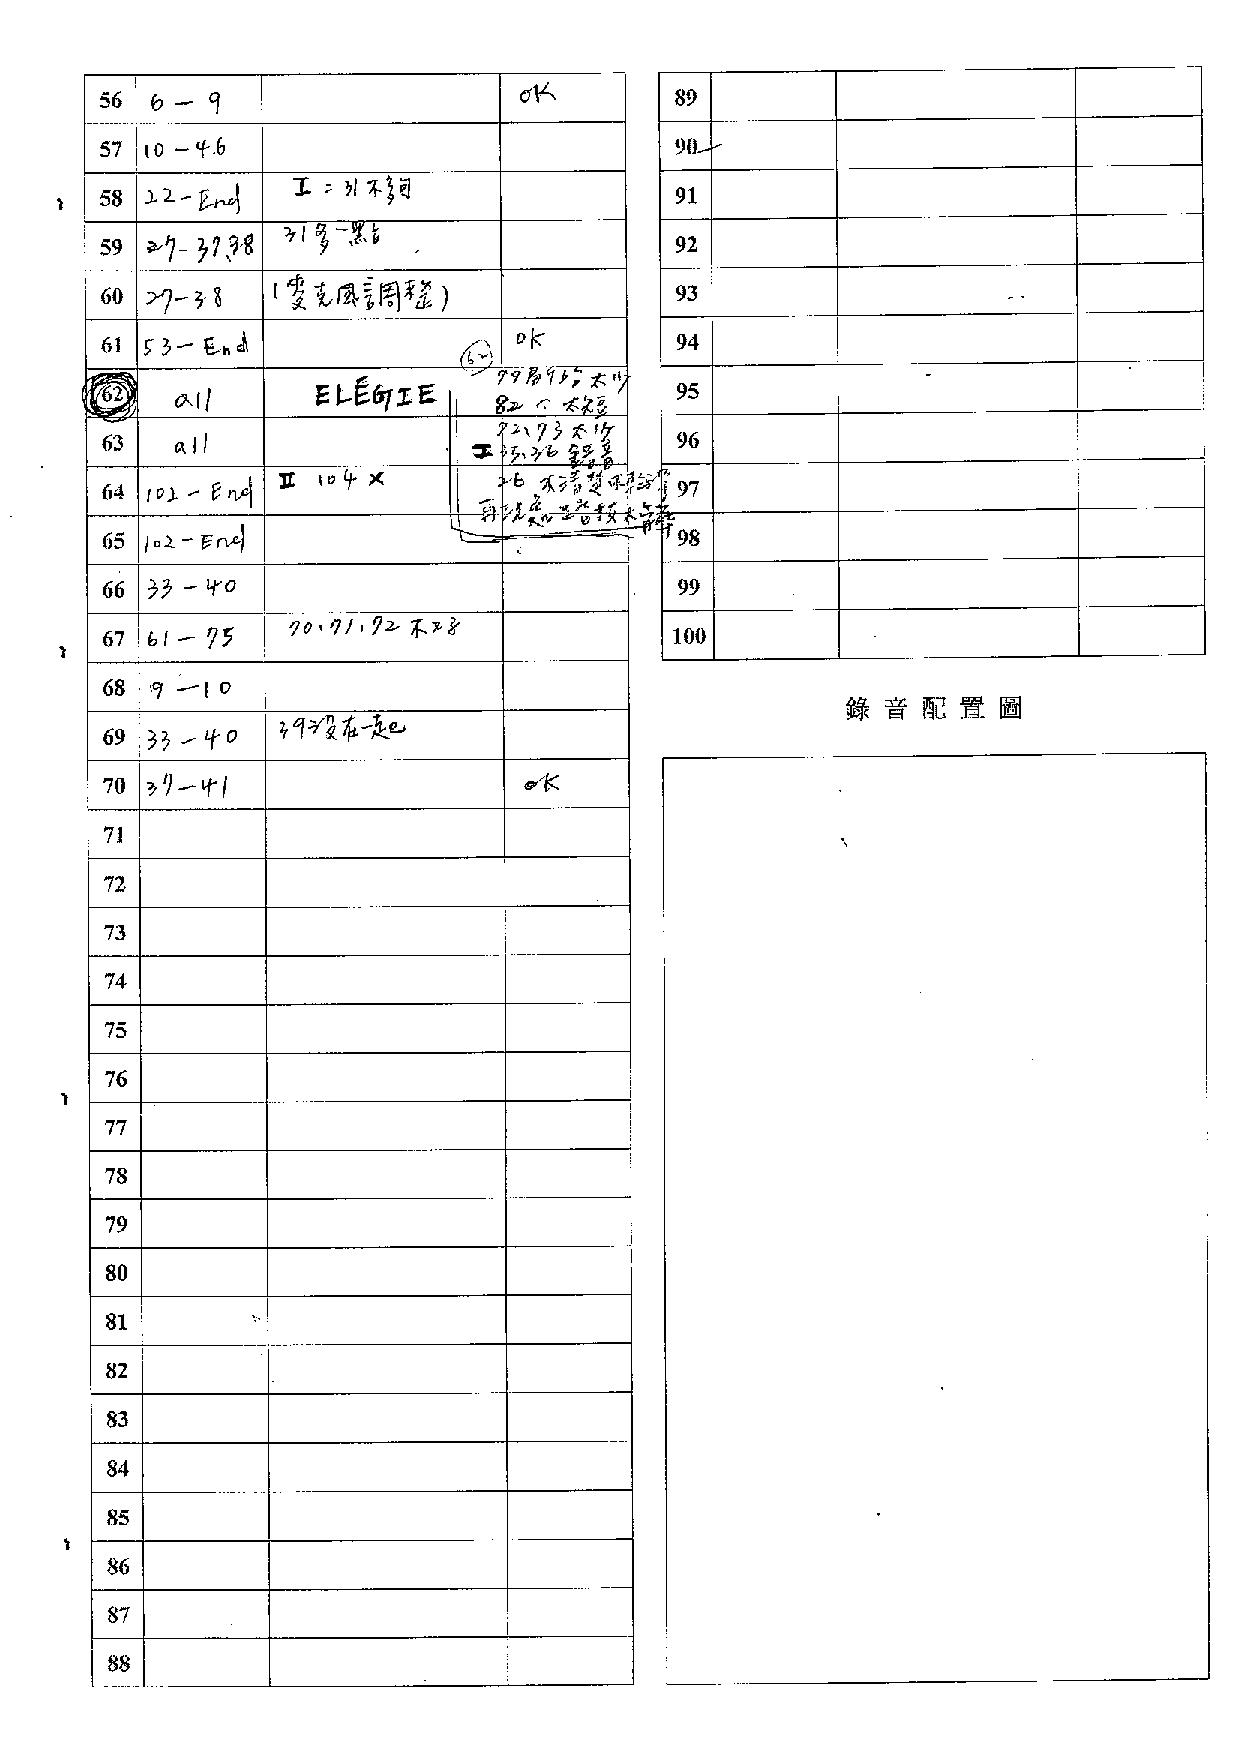 56 6 - 9 OK
57 10 - 46
58 22 - End I : 31不夠
59 27 - 37、38 31多一點
60 27 - 38 (麥克風調整)
61 53 - End OK
62 all ELÉGIE
62
82 太短
72、73太
63 all
I 35、36 錯音
64 102 - End II 104 X
26 不清楚
65 102 - End
66 33 - 40
67 61 - 75 70、71、72
68 9 - 10
69 33 - 40 39沒在一起
70 37 - 41 OK
71
72
73
74
75
76
77
78
79
80
81
82
83
84
85
86
87
88
89
90
91
92
93
94
95
96
97
98
99
100
錄音配置圖